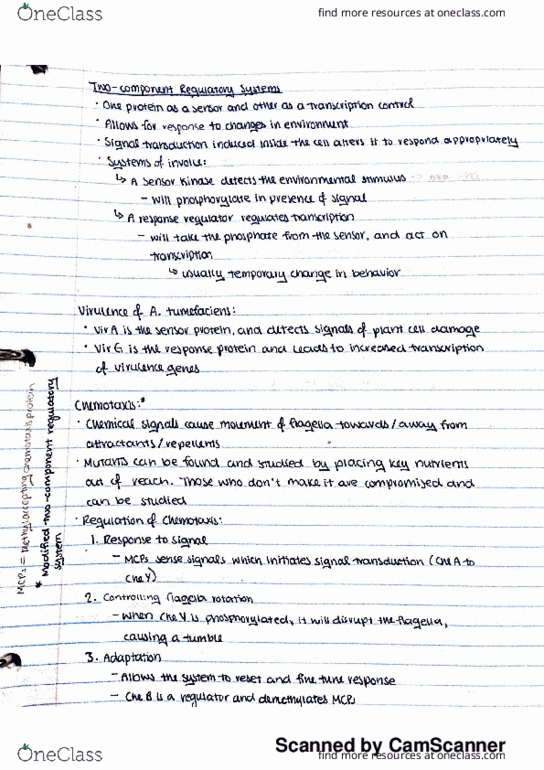 OneClass
find more resources at oneclass.com
Two-component Regulatory Systems
· One protein as a sensor and other as a transcription control
· Allows for response to changes in environment
· Signal transduction induced inside the cell alters it to respond appropriately
· Systems of involve:
↳ A sensor kinase detects the environmental stimulus
- will phosphorylate in presence of signal
↳ A response regulator regulates transcription
- will take the phosphate from the sensor, and act on
transcription
↳ usually temporary change in behavior
Virulence of A. tumefaciens:
· Vir A is the sensor protein, and detects signals of plant cell damage
· Vir G is the response protein and leads to increased transcription
of virulence genes
Chemotaxis:*
· Chemical signals cause movement of flagella towards/away from
attractants/repellents
· Mutants can be found and studied by placing key nutrients
out of reach. Those who don't make it are compromised and
can be studied
· Regulation of Chemotaxis:
1. Response to signal
- MCPs sense signals which initiates signal transduction (Che A to
Che Y)
2. Controlling flagella rotation
- When Che Y is phosphorylated, it will disrupt the flagella,
causing a tumble
3. Adaptation
- Allows the system to reset and fine tune response
- Che B is a regulator and demethylates MCPs
MCPs = methyl accepting chemotaxis protein
* Modified two-component regulatory
system
Scanned by CamScanner
OneClass
find more resources at oneclass.com